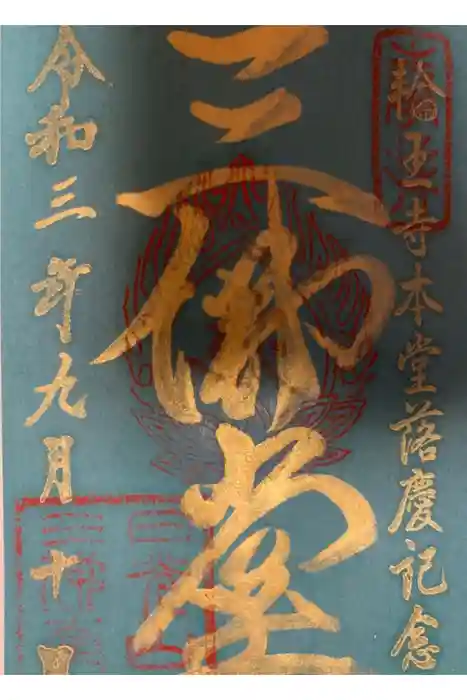 輪王寺本堂落慶記念
三佛堂
令和三年九月十日